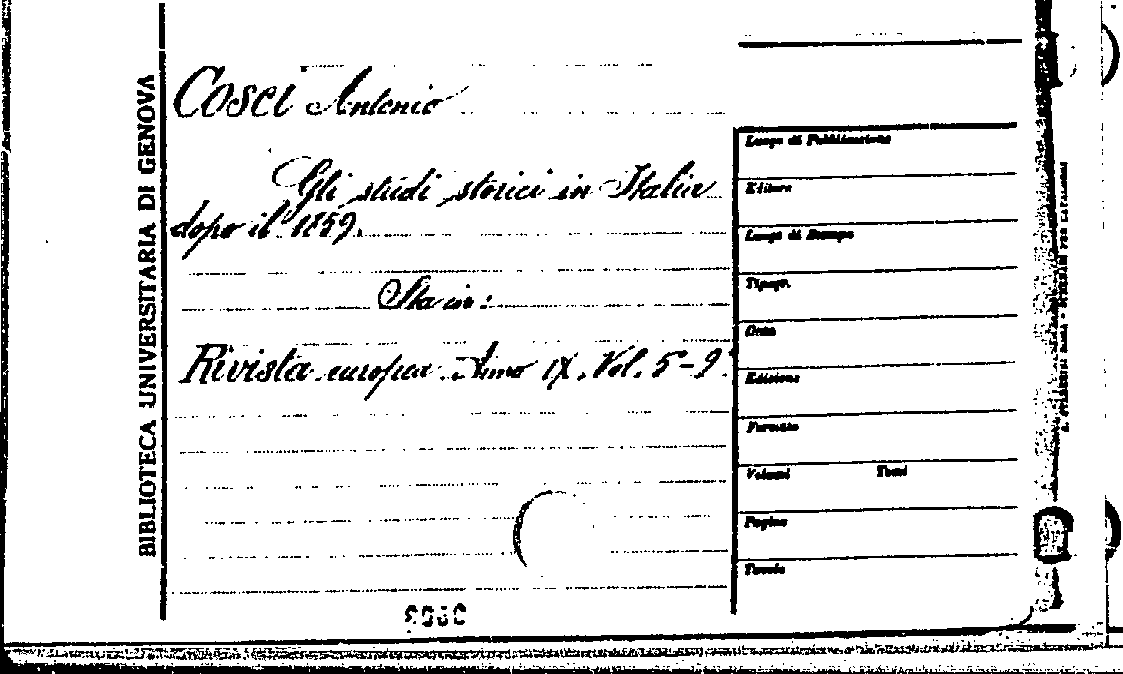 BIBLIOTECA UNIVERSITARIA DI GENOVA
Cosci Antonio
Gli studi storici in Italia
dopo il 1859.
Sta in:
Rivista europea. Anno IX, Vol. 5-9.
Luogo di Pubblicazione
Editore
Luogo di Stampa
Tipogr.
Data
Edizione
Formato
Volumi Tomi
Pagine
Tavole